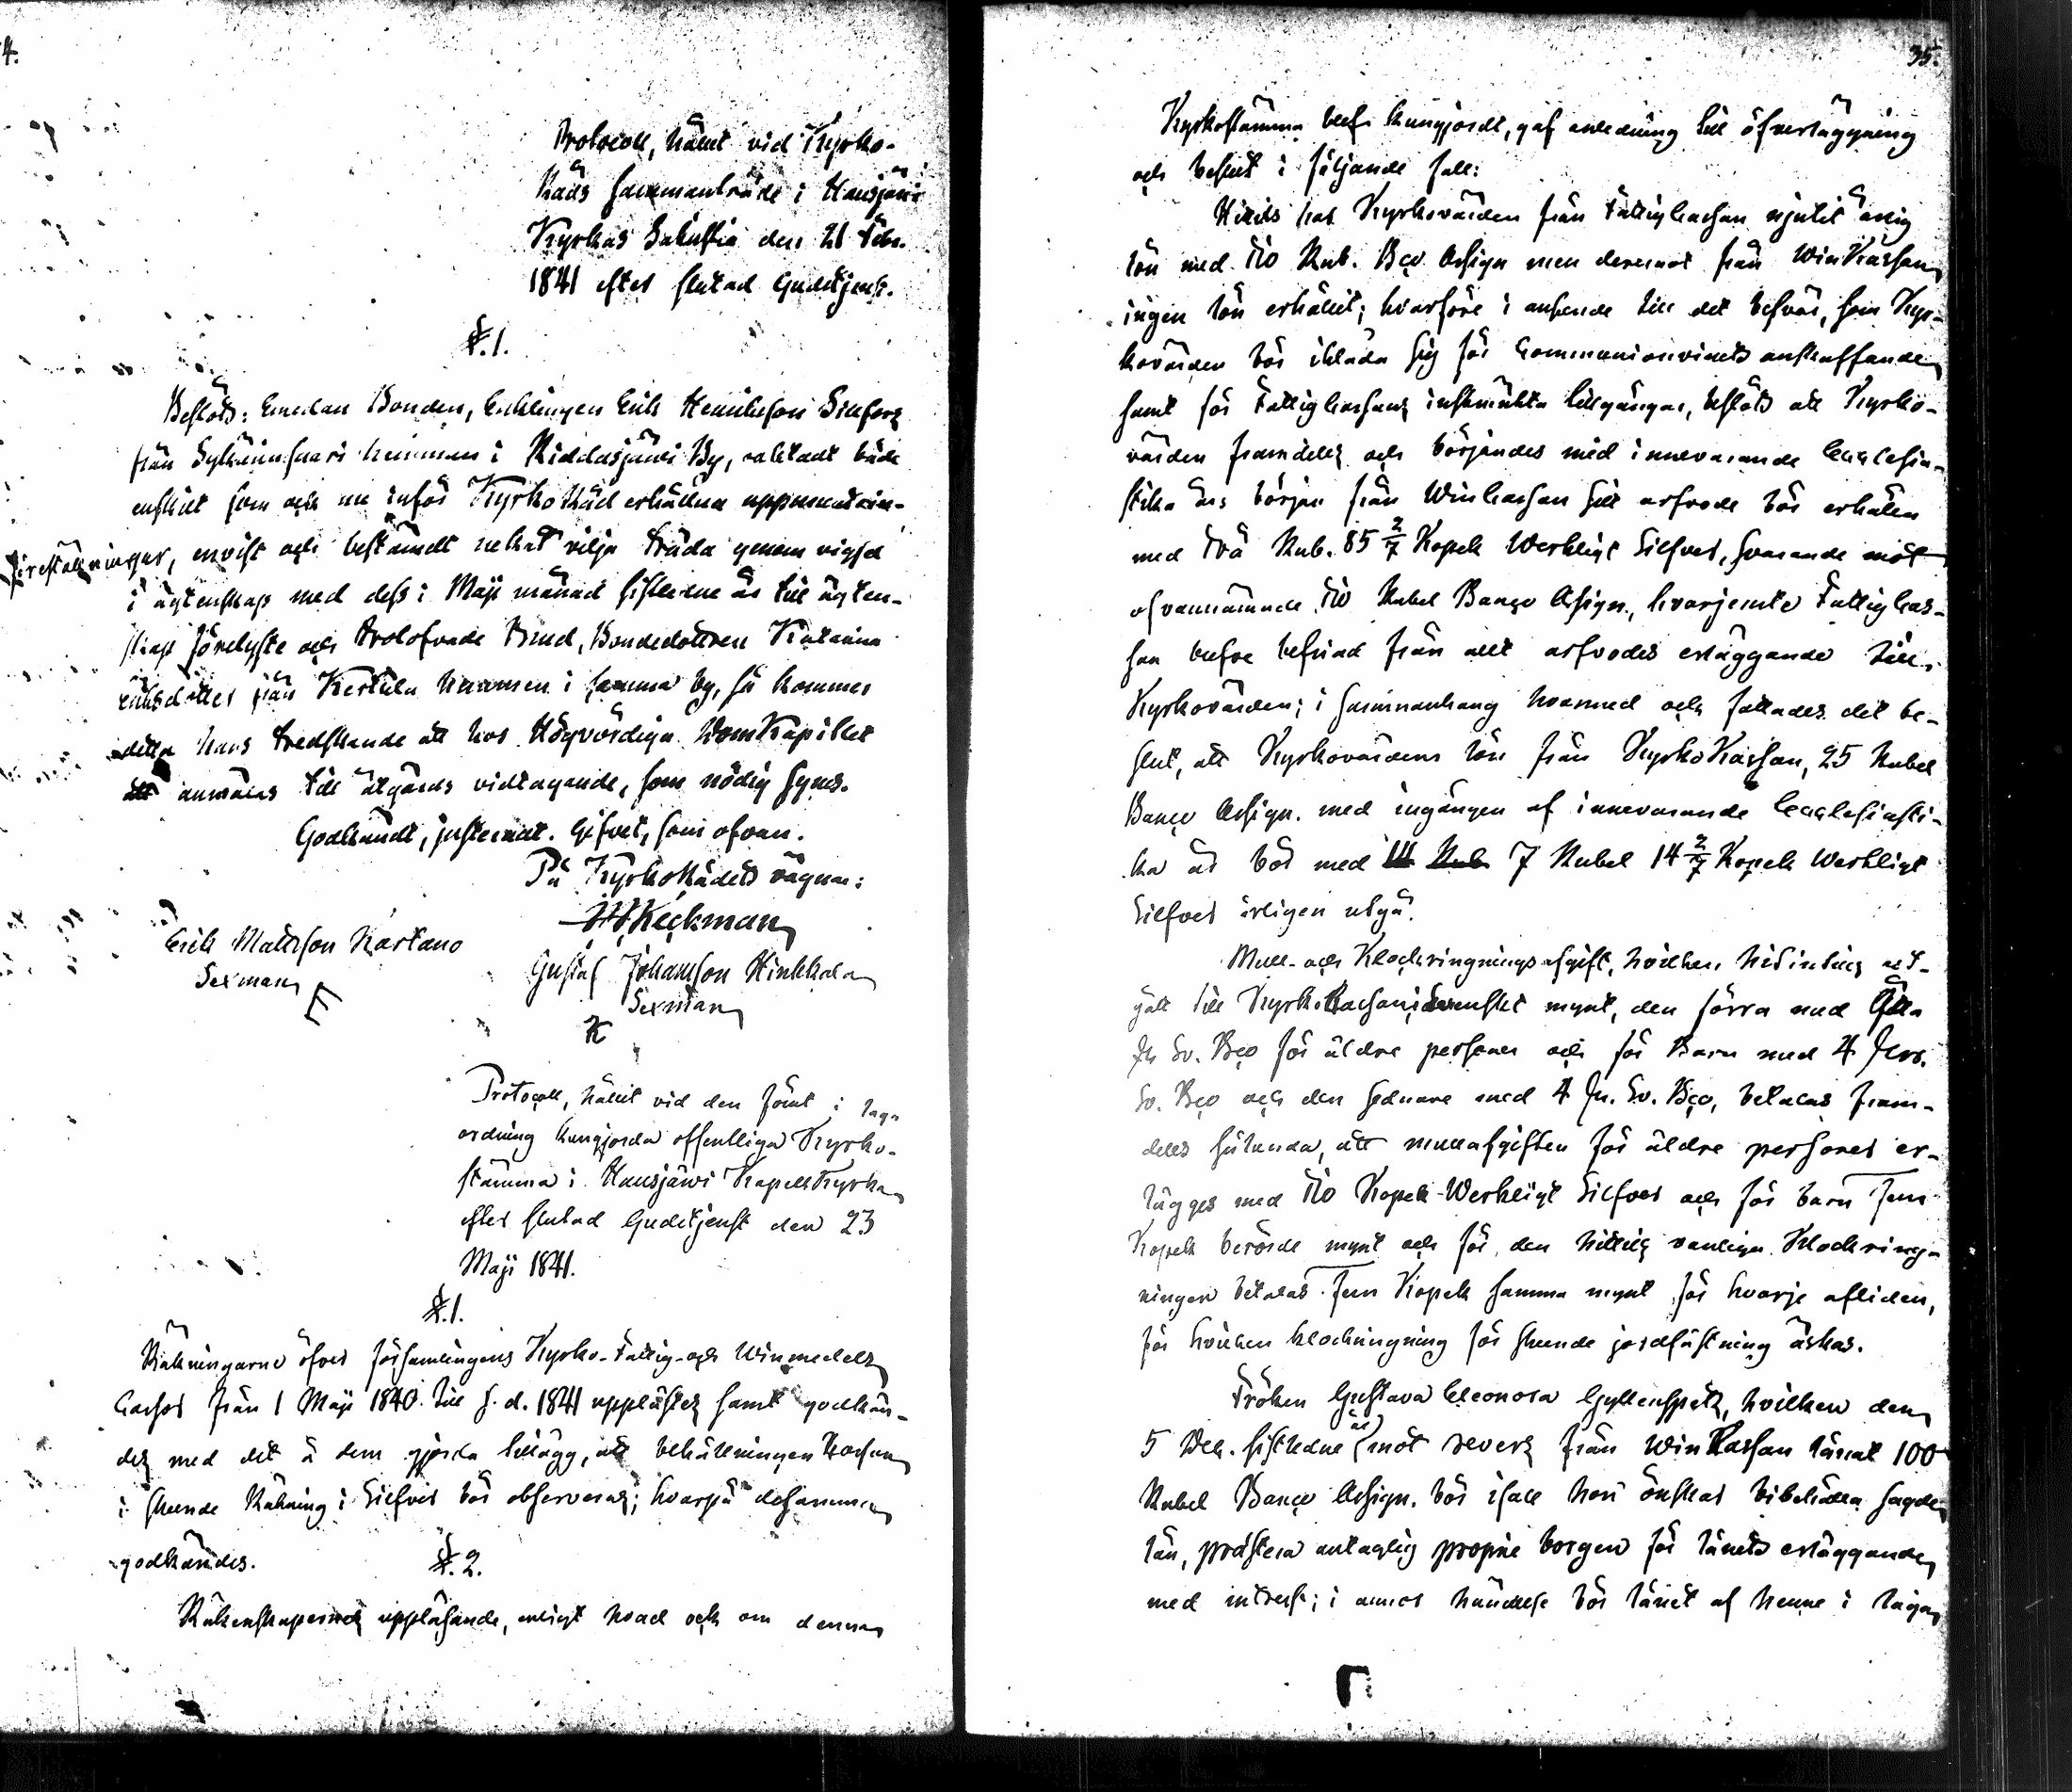 4.
Protocoll, hållit vid Kyrko-
Råds sammanträde i Hausjärvi
Kyrkas Sakristia den 21 Febr.
1841 efter slutad Gudstjenst.
§.1.
Beslöts: Emedan Bonden, Enklingen Erik Henriksson
från hemman i Riddasjärvi By, oaktadt både
enskilt som ock nu inför KyrkoRåd erhållna uppmuntrin-
föreställningar, envist och bestämdt nekat vilja träda genom vigsel
i ägtenskap med dess i Maji månad sistledne år till ägten-
skap förelyste och trolofvade Brud, Bondedottren Katarina
Eriksdotter från Kerkula hemman i samma by, så kommer
detta hans tredskande att hos Högvördiga DomKapitlet
att anmälas till åtgärds vidtagande, som nödig synes.
Godkändt, justeradt. Gifvet, som ofvan.
På KyrkoRådets vägnar:
Keckman
Erik Mattsson Kartano
Sexman
Gustaf Johansson Hinkkala
Sexman
K
Protocoll, hållit vid den förut i laga
ordning kungjorda offentliga Kyrko-
stämma i Hausjärvi KapellKyrka
efter slutad Gudstjenst den 23
Maji 1841.
§.1.
Räkningarne öfver församlingens Kyrko- Fattig- och Winmedels
Cassor från 1 Maji 1840 till s. d. 1841 upplästes samt godkän-
des med det å dem gjorda tillägg, att behållningen Kassan
i skeende Räkning i Silfver bör observeras; hvarpå desamma
godkändes.
§.2.
Räkenskapernes uppläsande, enligt hvad ock om denna
35.
Kyrkostämma blef kungjordt, gaf anledning till öfverläggning
och beslut i följande fall:
Hittils har Kyrkovärden från Fattigkassan njutit årlig
lön med Tio Rub. Bco Assign men deremot från WinKassan
ingen lön erhållit; hvarföre i anseende till det besvär, som Kyr-
kovärden bör ikläda sig för Communionvinets anskaffande
samt för Fattigkassans inskränkta tillgångar, beslöts att Kyrko-
värden framdeles och börjandes med innevarande Ecclesia-
stika års början från Winkassan sitt arfvode bör erhålla
med Två Rub. 85 2/7 Kopek Werkligt Silfver, svarande mot
ofvannämnde Tio Rubel Banco Assign., hvarjemte Fattigkas-
san blefve befriad från allt arfvodes erläggande till
Kyrkovärden; i sammanhang hvarmed ock fattades det be-
slut, att Kyrkovärdens lön från KyrkoKassan, 25 Rubel
Banco Assign. med ingången af innevarande Ecclesiasti-
ka år bör med 14 Rub 7 Rubel 14 2/7 Kopek Werkligt
Silfver årligen utgå.
Mull- och Klockringningsafgift, hvilken hitintills ut-
gått till KyrkoKassan i Svenskt mynt, den förra med Åtta
sk Sv. Bco för äldre personer och för Barn med 4 sk.
Sv. Bco och den sednare med 4 sk. Sv. Bco, betalas fram-
deles sålunda, att mullafgiften för äldre personer er-
lägges med Tio Kopek Werkligt Silfver och för barn Fem
Kopek berörde mynt och för den hittils vanliga Klockring-
ningen betalas Fem Kopek samma mynt för hvarje afliden,
för hvilken klockringning för skeende jordfästning äskas.
Fröken Gustava Eleonora Gyllenspetz, hvilken den
5 Dec. sistledne år mot revers från WinKassan lånat 100
Rubel Banco Assign. bör ifall hon önskar bibehålla sagde
lån, prestera antaglig proprie borgen för lånets erläggande
med intresse; i annor händelse bör lånet af henne i laga